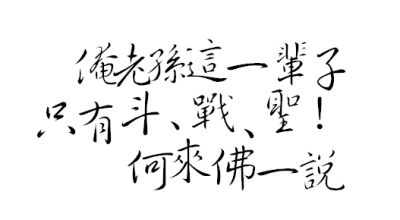 俺老孫這一輩子
只有斗、戰、聖！
何來佛一說